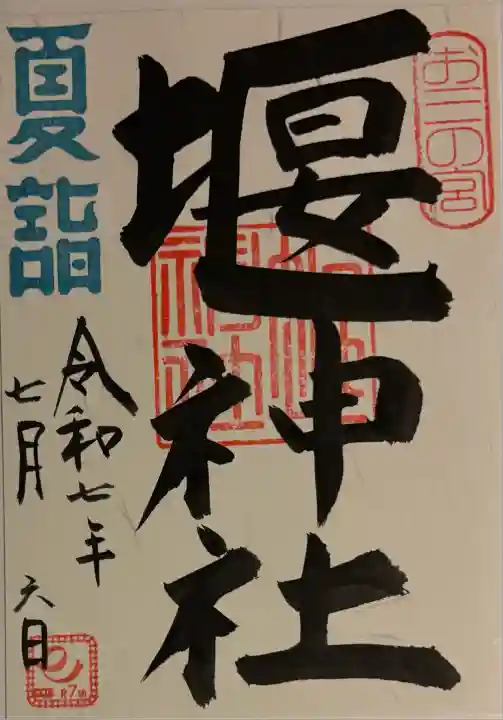 お三の宮
堰神社
夏詣
令和七年
七月六日
R7